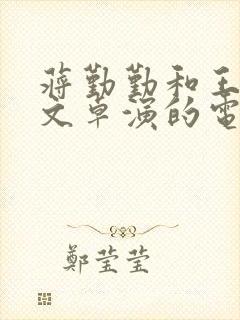 蔣勤勤和王
文卓演的電
鄭瑩瑩